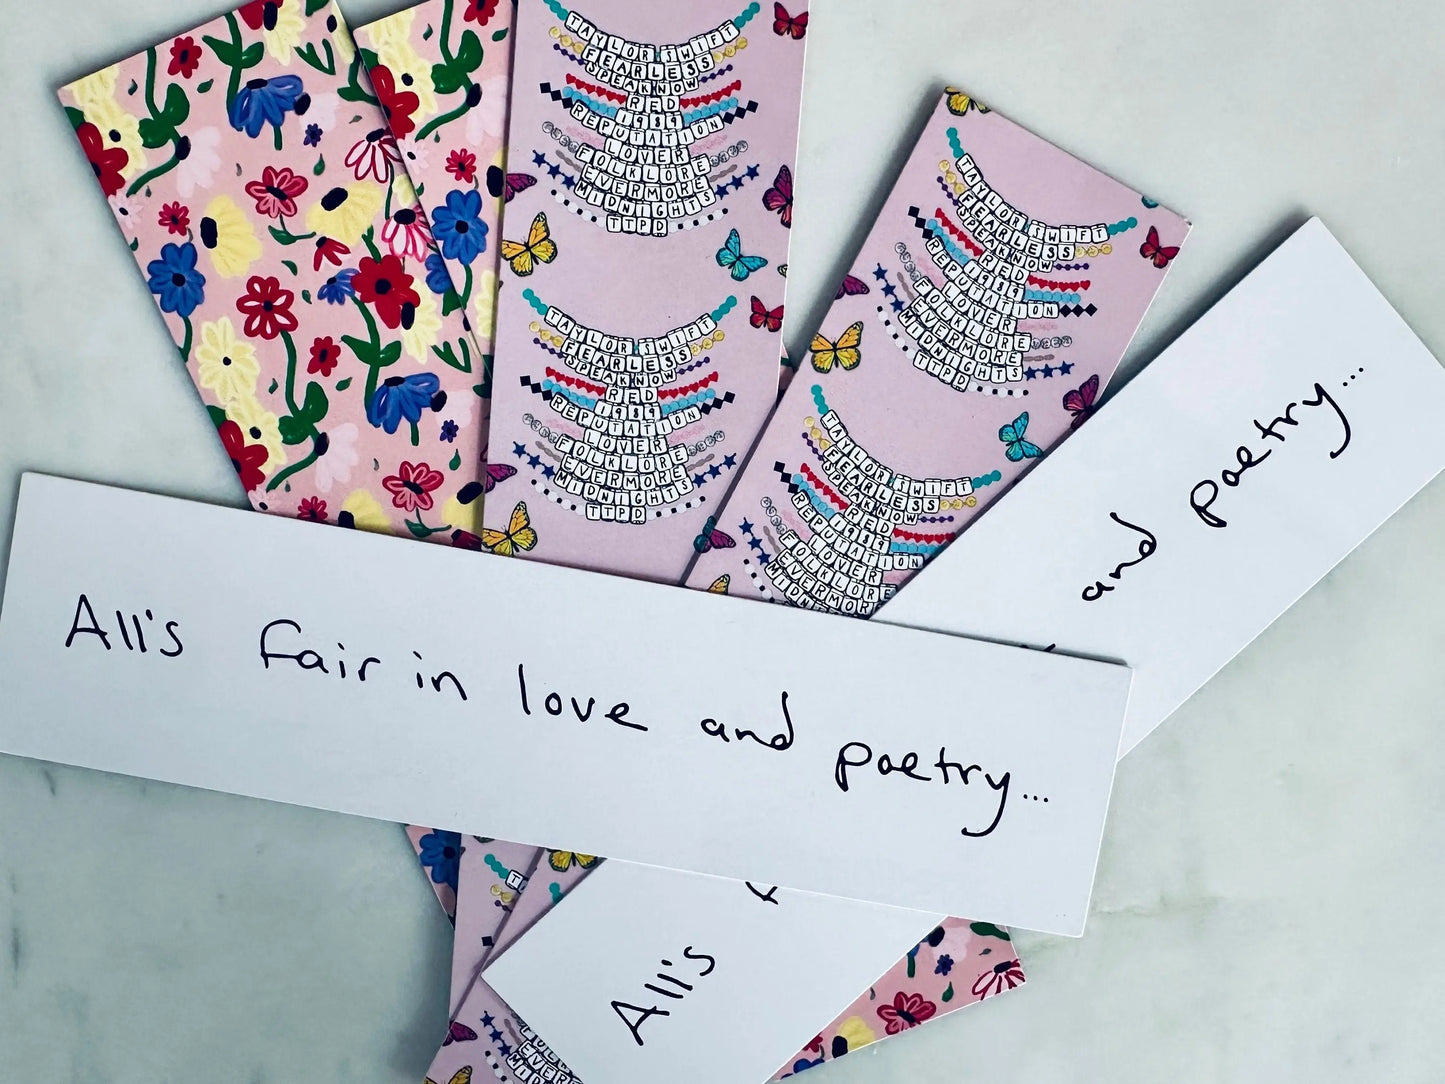 TAYLOR SWIFT
FEARLESS
SPEAK NOW
RED
1989
REPUTATION
LOVER
FOLKLORE
EVERMORE
MIDNIGHTS
TTPD
TAYLOR SWIFT
FEARLESS
SPEAK NOW
RED
1989
REPUTATION
LOVER
FOLKLORE
EVERMORE
MIDNIGHTS
TTPD
TAYLOR SWIFT
FEARLESS
SPEAK NOW
RED
1989
REPUTATION
LOVER
FOLKLORE
EVERMORE
MIDNIGHTS
TTPD
TAYLOR SWIFT
FEARLESS
SPEAK NOW
RED
1989
REPUTATION
LOVER
FOLKLORE
EVERMORE
and poetry...
All's fair in love and poetry...
All's